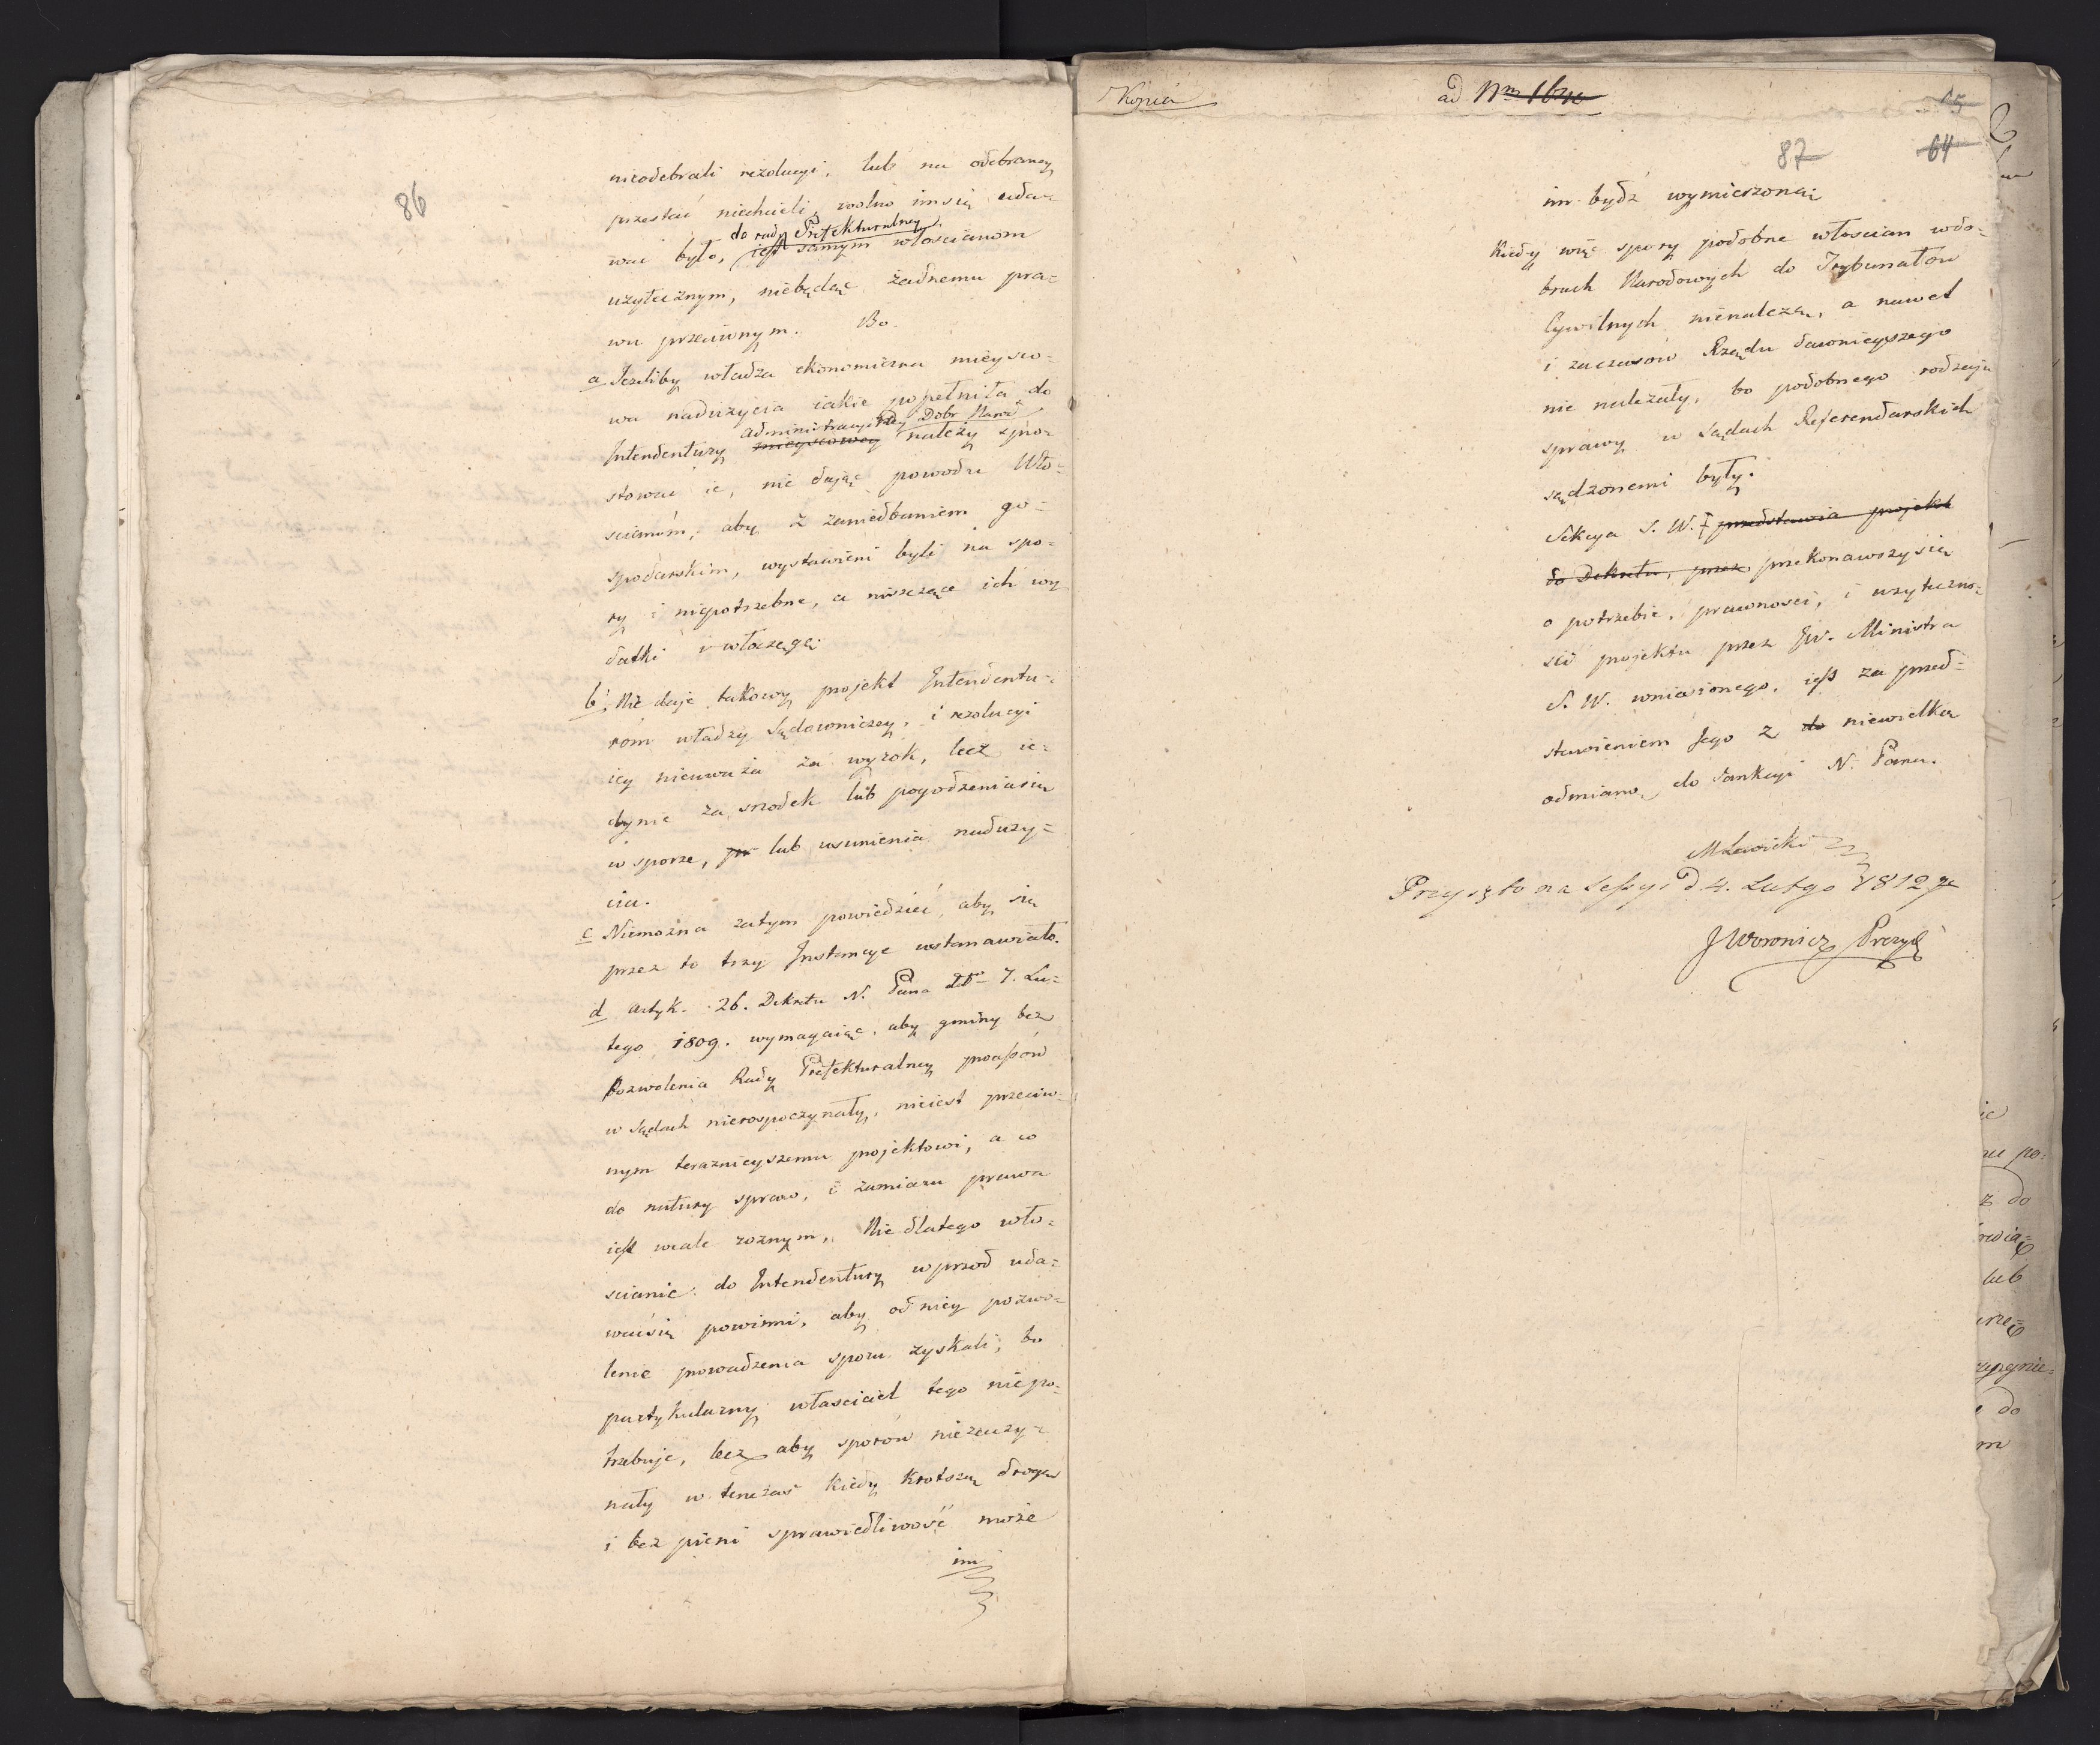 86
nieodebrali rezolucyi, lub na odebraney
przestać niechcieli, wolno imsię uda=
do rady Prefekturalney
wać było, jest samym włościanom
użytecznym, niebędąc żadnemu pra=
wu przeciwnym. Bo.
a Jeżeliby władza ekonomiczna mieysco=
wa nadużycia iakie popełniła, do
administracyi Dobr Narod
Intendentury mieyscowey należy spro=
stować ie, nie dając powodu Wło=
scianóm, aby z zaniedbaniem go=
spodarskim, wystawieni byli na spo=
ry i niepotrzebne, a niszczące ich wy
datki i włóczęgę.
b, Nie daje takowy projekt Intendentu=
róm władzy Sądowniczey, i rezolucyi
iey nieuważa za wyrok, lecz ie=
dynie za srzodek lub pogodzeniasię
w sporze, pr lub usunienia naduży=
cia.
c Niemożna zatym powiedzieć, aby się
przez to trzy Instancye ustanawiało.
d artyk. 26. Dekretu N. Pana dto 7. Lu=
tego 1809. wymagaiąc, aby gminy bez
Pozwolenia Rady Prefekturalney processów
w Sądach nierospoczynały, nieiest przeciw=
nym teraznieyszemu projektowi, a co
do natury spraw, i zamiaru prawa
jest wcale roznym, Nie dlatego wło=
scianie do Intendentury wprzod uda=
waćsię powinni, aby od niey pozwo=
lenie prowadzenia sporu zyskali, bo
partykularny własciciel tego niepo=
trzebuje, lecz aby sporów niezaczy=
nały w tenczas kiedy krotszą drogą
i bez pieni sprawiedliwość może
im
Kopia
ad Nm
87
64
im bydź wymierzoną;
Kiedy więc spory podobne włoscian wdo=
brach Narodowych do Trybunałow
Cywilnych nienależą, a nawet
i zaczasów Rządu dawnieyszego
nie należały, bo podobnego rodzaju
sprawy w Sądach Referendarskich
sądzonemi były.
Sekcya S. W. przedstawia projekt
do Dekretu, przez przekonawszy się
o potrzebie, prawnosci, i użyteczno=
ści projektu przez Jw. Ministra
S. W. wniesionego, jest za przed=
stawieniem Jego z do niewielką
odmianą do Sankcyi N. Pana.
MLewicki
Przyszło na Sessyi d. 4. Lutgo 1812 ge
JWoronicz Prezyd